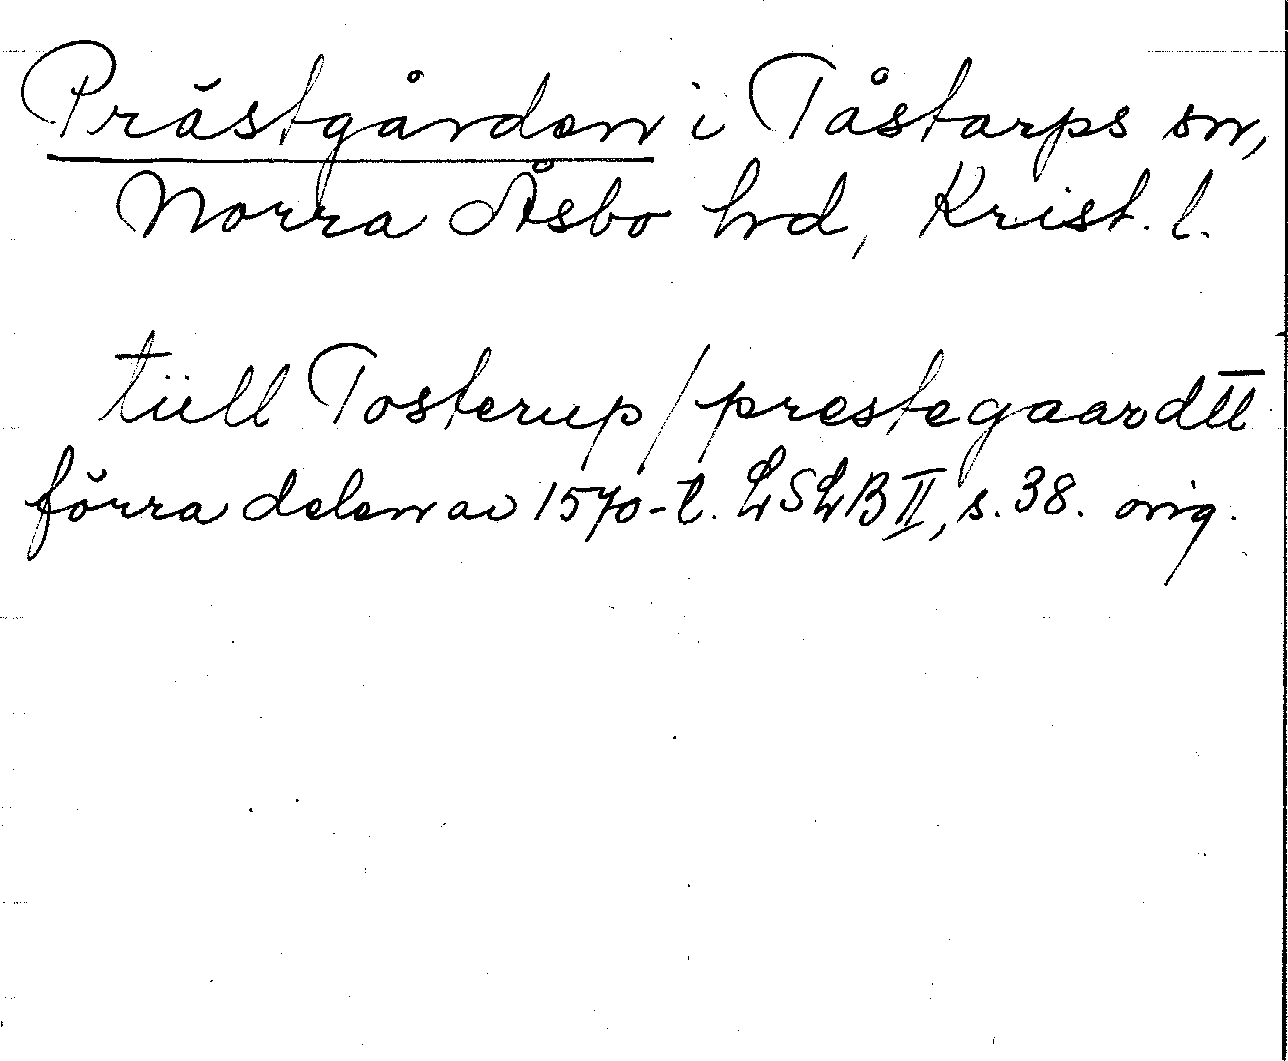 Prästgården i Tåstarps sn,
Norra Åsbo hd, Krist. l.
tüll Tosterup / prestegaardtt
förra delen av 1570-t. LSLB II, s. 38. orig.